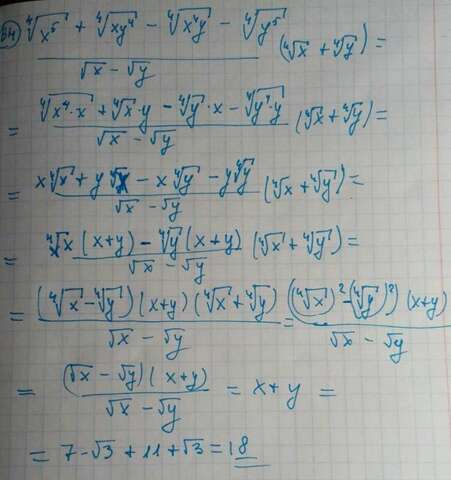 54) (⁴√x⁵ + ⁴√xy⁴ − ⁴√x⁴y − ⁴√y⁵)/(√x − √y) (⁴√x + ⁴√y) =
= (⁴√x⁴·x + ⁴√x·y − ⁴√y·x − ⁴√y⁴·y)/(√x − √y) (⁴√x + ⁴√y) =
= (x⁴√x + y⁴√x − x⁴√y − y⁴√y)/(√x − √y) (⁴√x + ⁴√y) =
= (⁴√x (x+y) − ⁴√y (x+y))/(√x − √y) (⁴√x + ⁴√y) =
= ((⁴√x − ⁴√y)(x+y)(⁴√x + ⁴√y))/(√x − √y) = (((⁴√x)² − (⁴√y)²)(x+y))/(√x − √y)
= ((√x − √y)(x+y))/(√x − √y) = x+y =
= 7 − √3 + 11 + √3 = 18